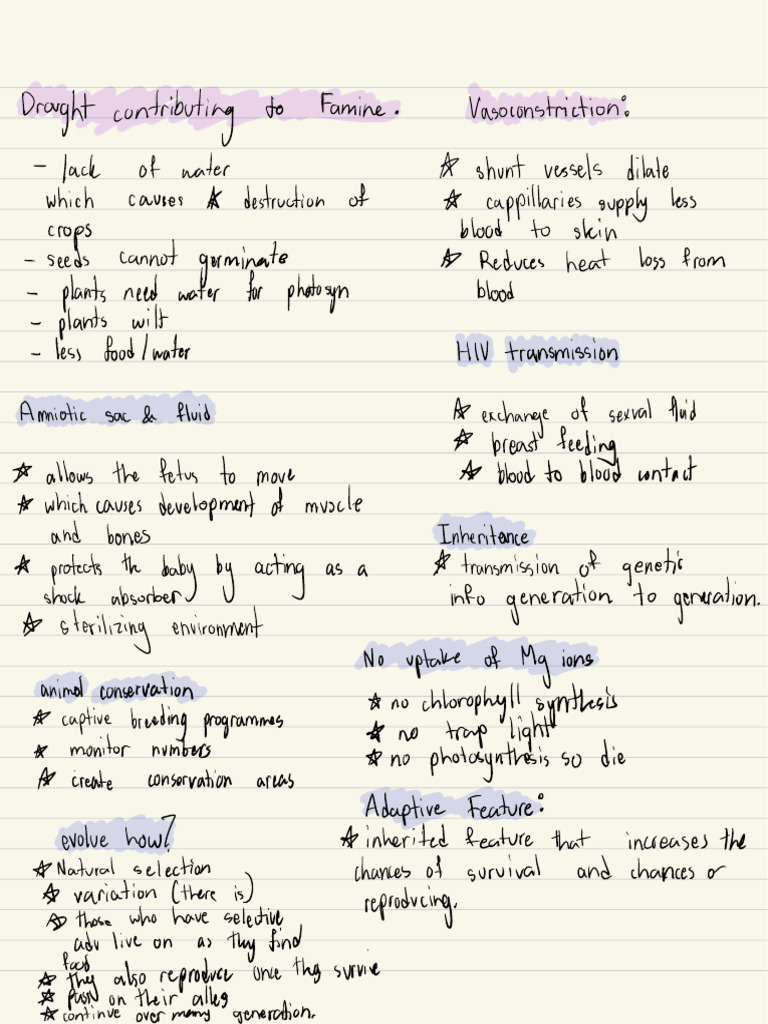 Drought contributing to Famine.
- lack of water
which causes ☆ destruction of
crops
- seeds cannot germinate
- plants need water for photosyn
- plants wilt
- less food/water
Amniotic sac & fluid
☆ allows the fetus to move
☆ which causes development of muscle
and bones
☆ protects the baby by acting as a
shock absorber
☆ sterilizing environment
animal conservation
☆ captive breeding programmes
☆ monitor numbers
☆ create conservation areas
evolve how?
☆ Natural selection
☆ variation (there is)
☆ those who have selective
adv live on as they find
food
☆ they also reproduce once they survive
☆ pass on their alleles
☆ continue over many generation.
Vasoconstriction:
☆ shunt vessels dilate
☆ cappillaries supply less
blood to skin
☆ Reduces heat loss from
blood
HIV transmission
☆ exchange of sexual fluid
☆ breast feeding
☆ blood to blood contact
Inheritance
☆ transmission of genetic
info generation to generation.
No uptake of Mg ions
☆ no chlorophyll synthesis
☆ no trap light
☆ no photosynthesis so die
Adaptive Feature:
☆ inherited feature that increases the
chances of survival and chances or
reproducing.